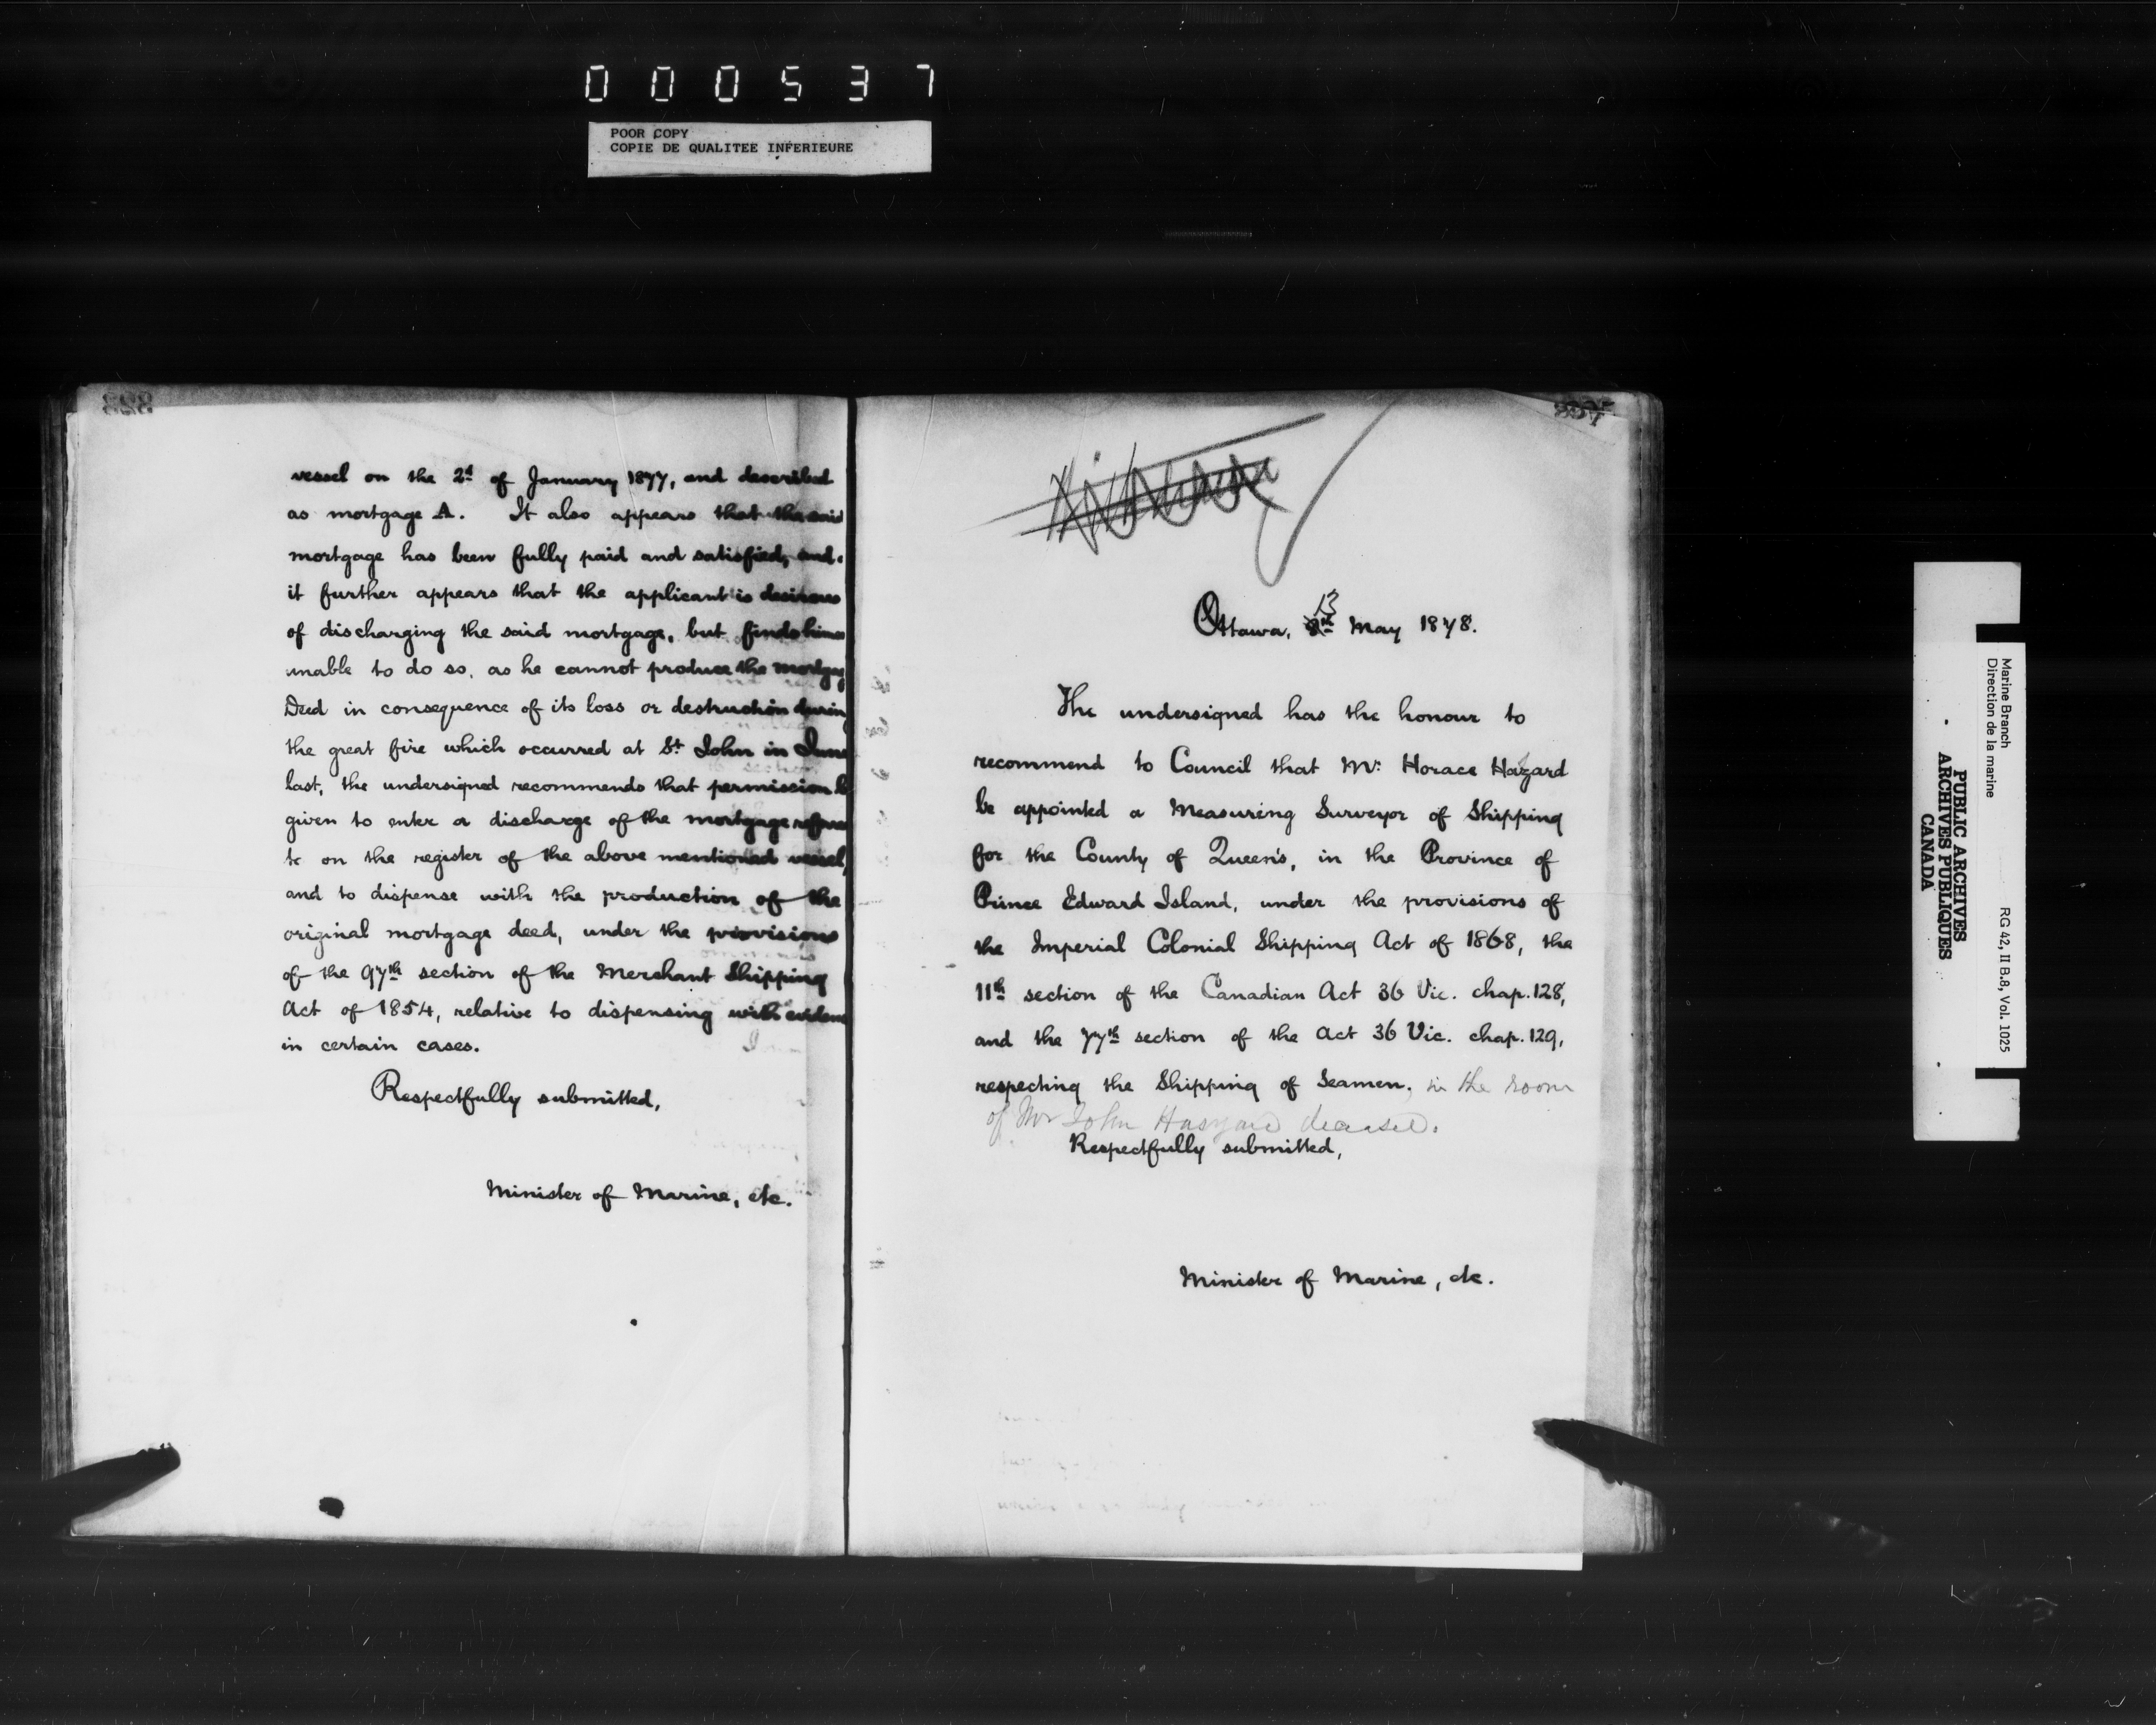 000537
POOR COPY
COPIE DE QUALITEE INFERIEURE
vessel on the 2d of January 1877, and described
as mortgage A. It also appears that the said
mortgage has been fully paid and satisfied, and
it further appears that the applicant is desirous
of discharging the said mortgage, but finds him
unable to do so, as he cannot produce the mortgag
Deed in consequence of its loss or destruction durin
the great fire which occurred at St John in June
last, the undersigned recommends that permission b
given to enter a discharge of the mortgage
to on the register of the above mentioned vessel,
and to dispense with the production of the
original mortgage deed, under the provisions
of the 97th section of the Merchant Shipping
Act of 1854, relative to dispensing with eviden
in certain cases.
Respectfully submitted,
Minister of Marine, etc.
Ottawa, 13 8th May 1878.
The undersigned has the honour to
recommend to Council that Mr. Horace Hazard
be appointed a Measuring Surveyor of Shipping
for the County of Queen's, in the Province of
Prince Edward Island, under the provisions of
the Imperial Colonial Shipping Act of 1868, the
11th section of the Canadian Act 36 Vic. chap. 128,
and the 77th section of the Act 36 Vic. chap. 129,
respecting the Shipping of Seamen, in the room
of Mr John Haszard deceased.
Respectfully submitted,
Minister of Marine, etc.
Marine Branch
Direction de la marine
RG 42, II B.8, Vol. 1025
PUBLIC ARCHIVES
ARCHIVES PUBLIQUES
CANADA